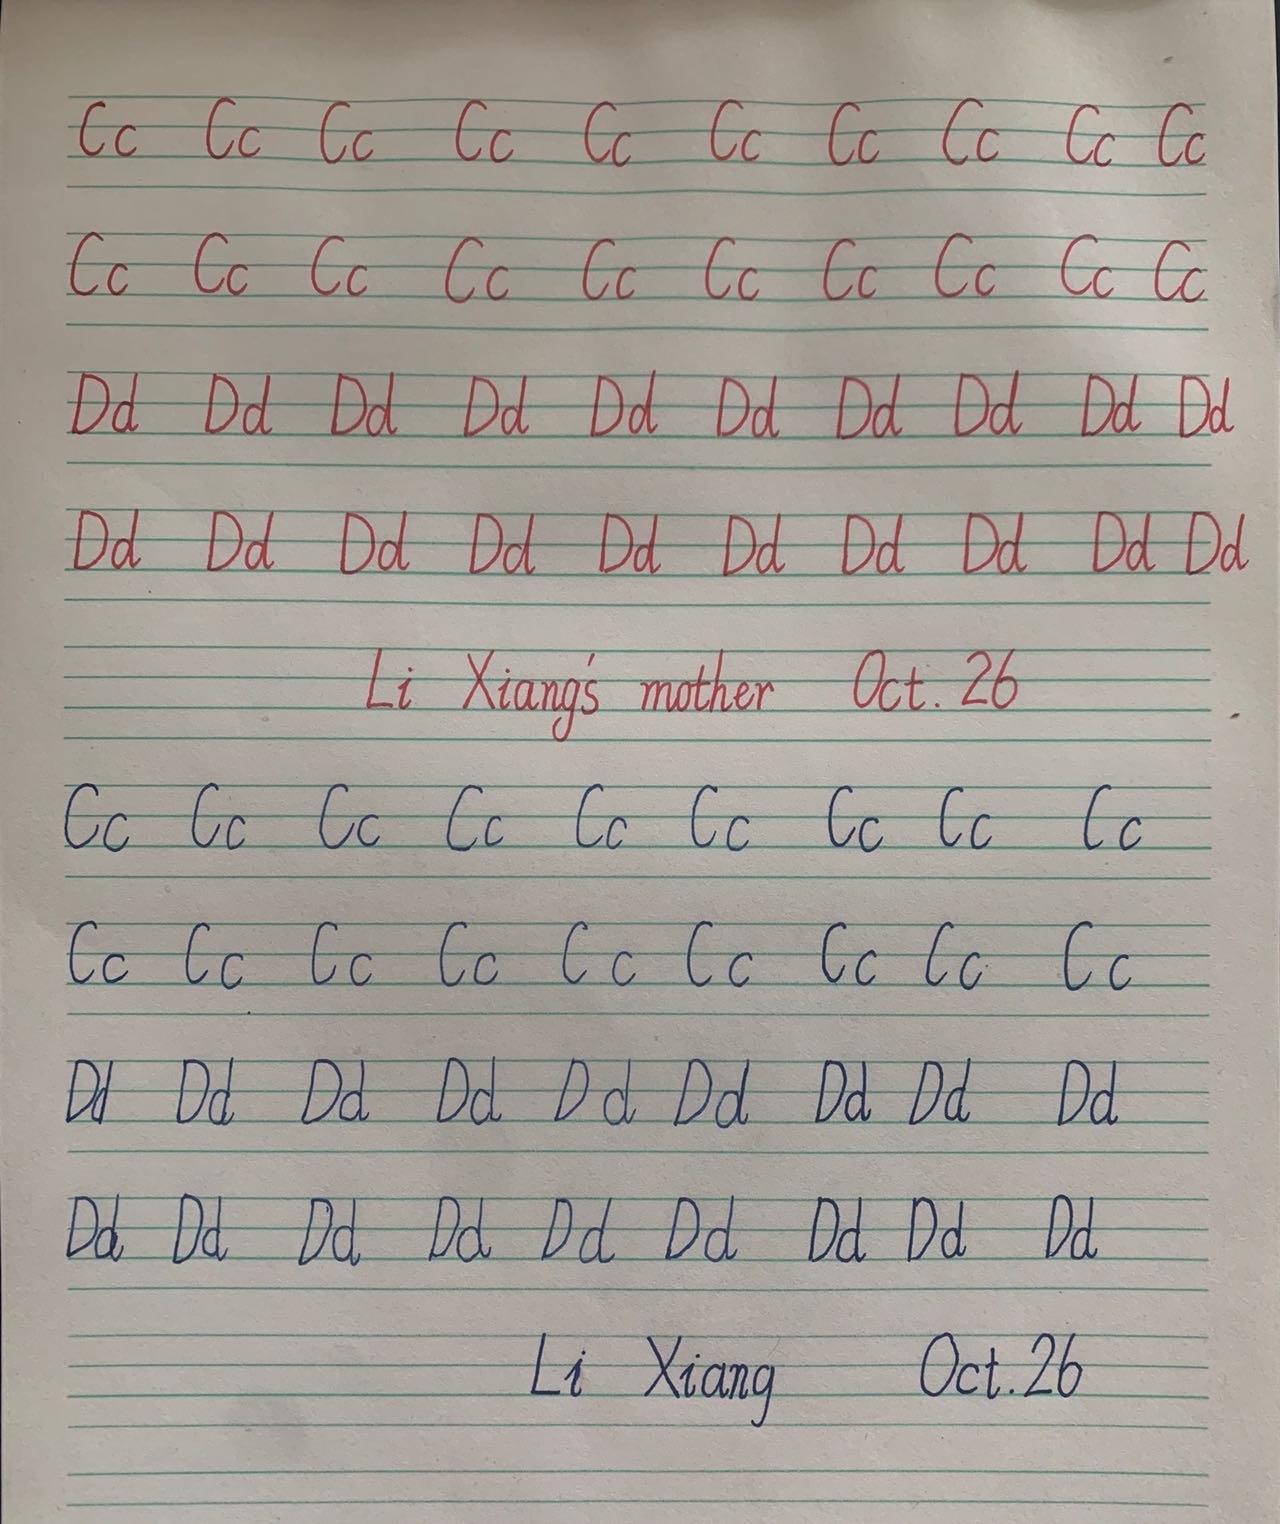 Cc Cc Cc Cc Cc Cc Cc Cc Cc Cc
Cc Cc Cc Cc Cc Cc Cc Cc Cc Cc
Dd Dd Dd Dd Dd Dd Dd Dd Dd Dd
Dd Dd Dd Dd Dd Dd Dd Dd Dd Dd
Li Xiang's mother Oct. 26
Cc Cc Cc Cc Cc Cc Cc Cc Cc
Cc Cc Cc Cc Cc Cc Cc Cc Cc
Dd Dd Dd Dd Dd Dd Dd Dd Dd
Dd Dd Dd Dd Dd Dd Dd Dd Dd
Li Xiang Oct. 26